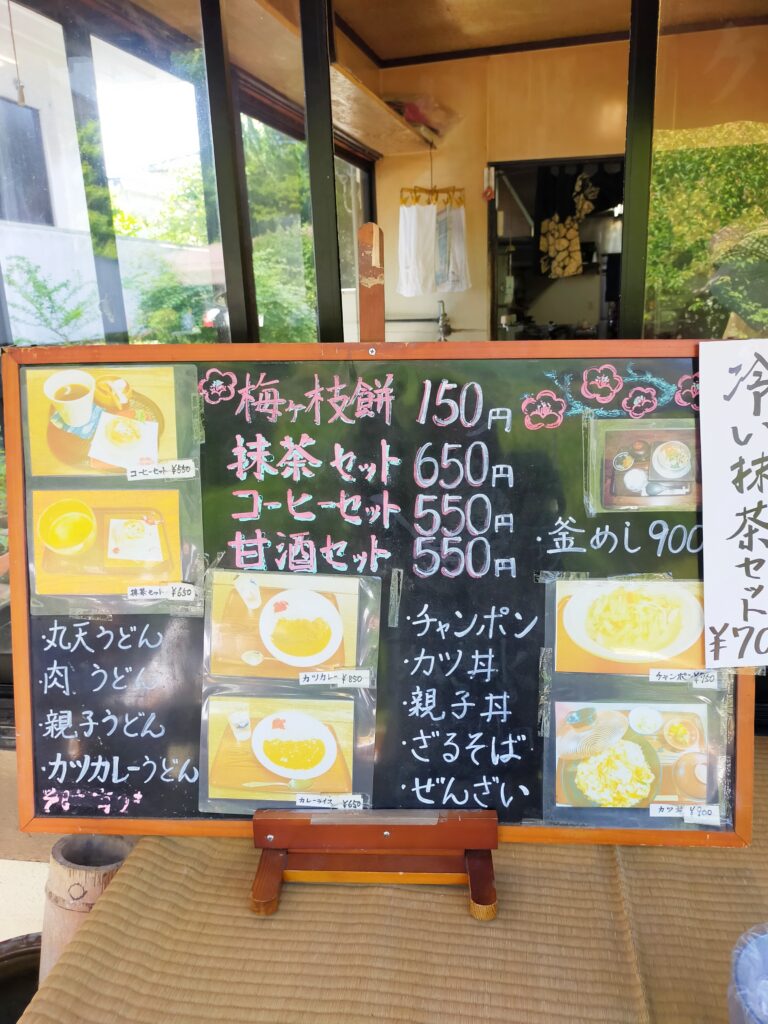 梅ヶ枝餅 150円
抹茶セット 650円
コーヒーセット 550円
甘酒セット 550円
コーヒーセット ¥550
抹茶セット ¥650
・釜めし 900
冷い抹茶セット
¥70
・丸天うどん
・肉うどん
・親子うどん
・カツカレーうどん
カツカレー ¥850
カレーライス ¥650
・チャンポン
・カツ丼
・親子丼
・ざるそば
・ぜんざい
チャンポン ¥750
カツ丼 ¥800